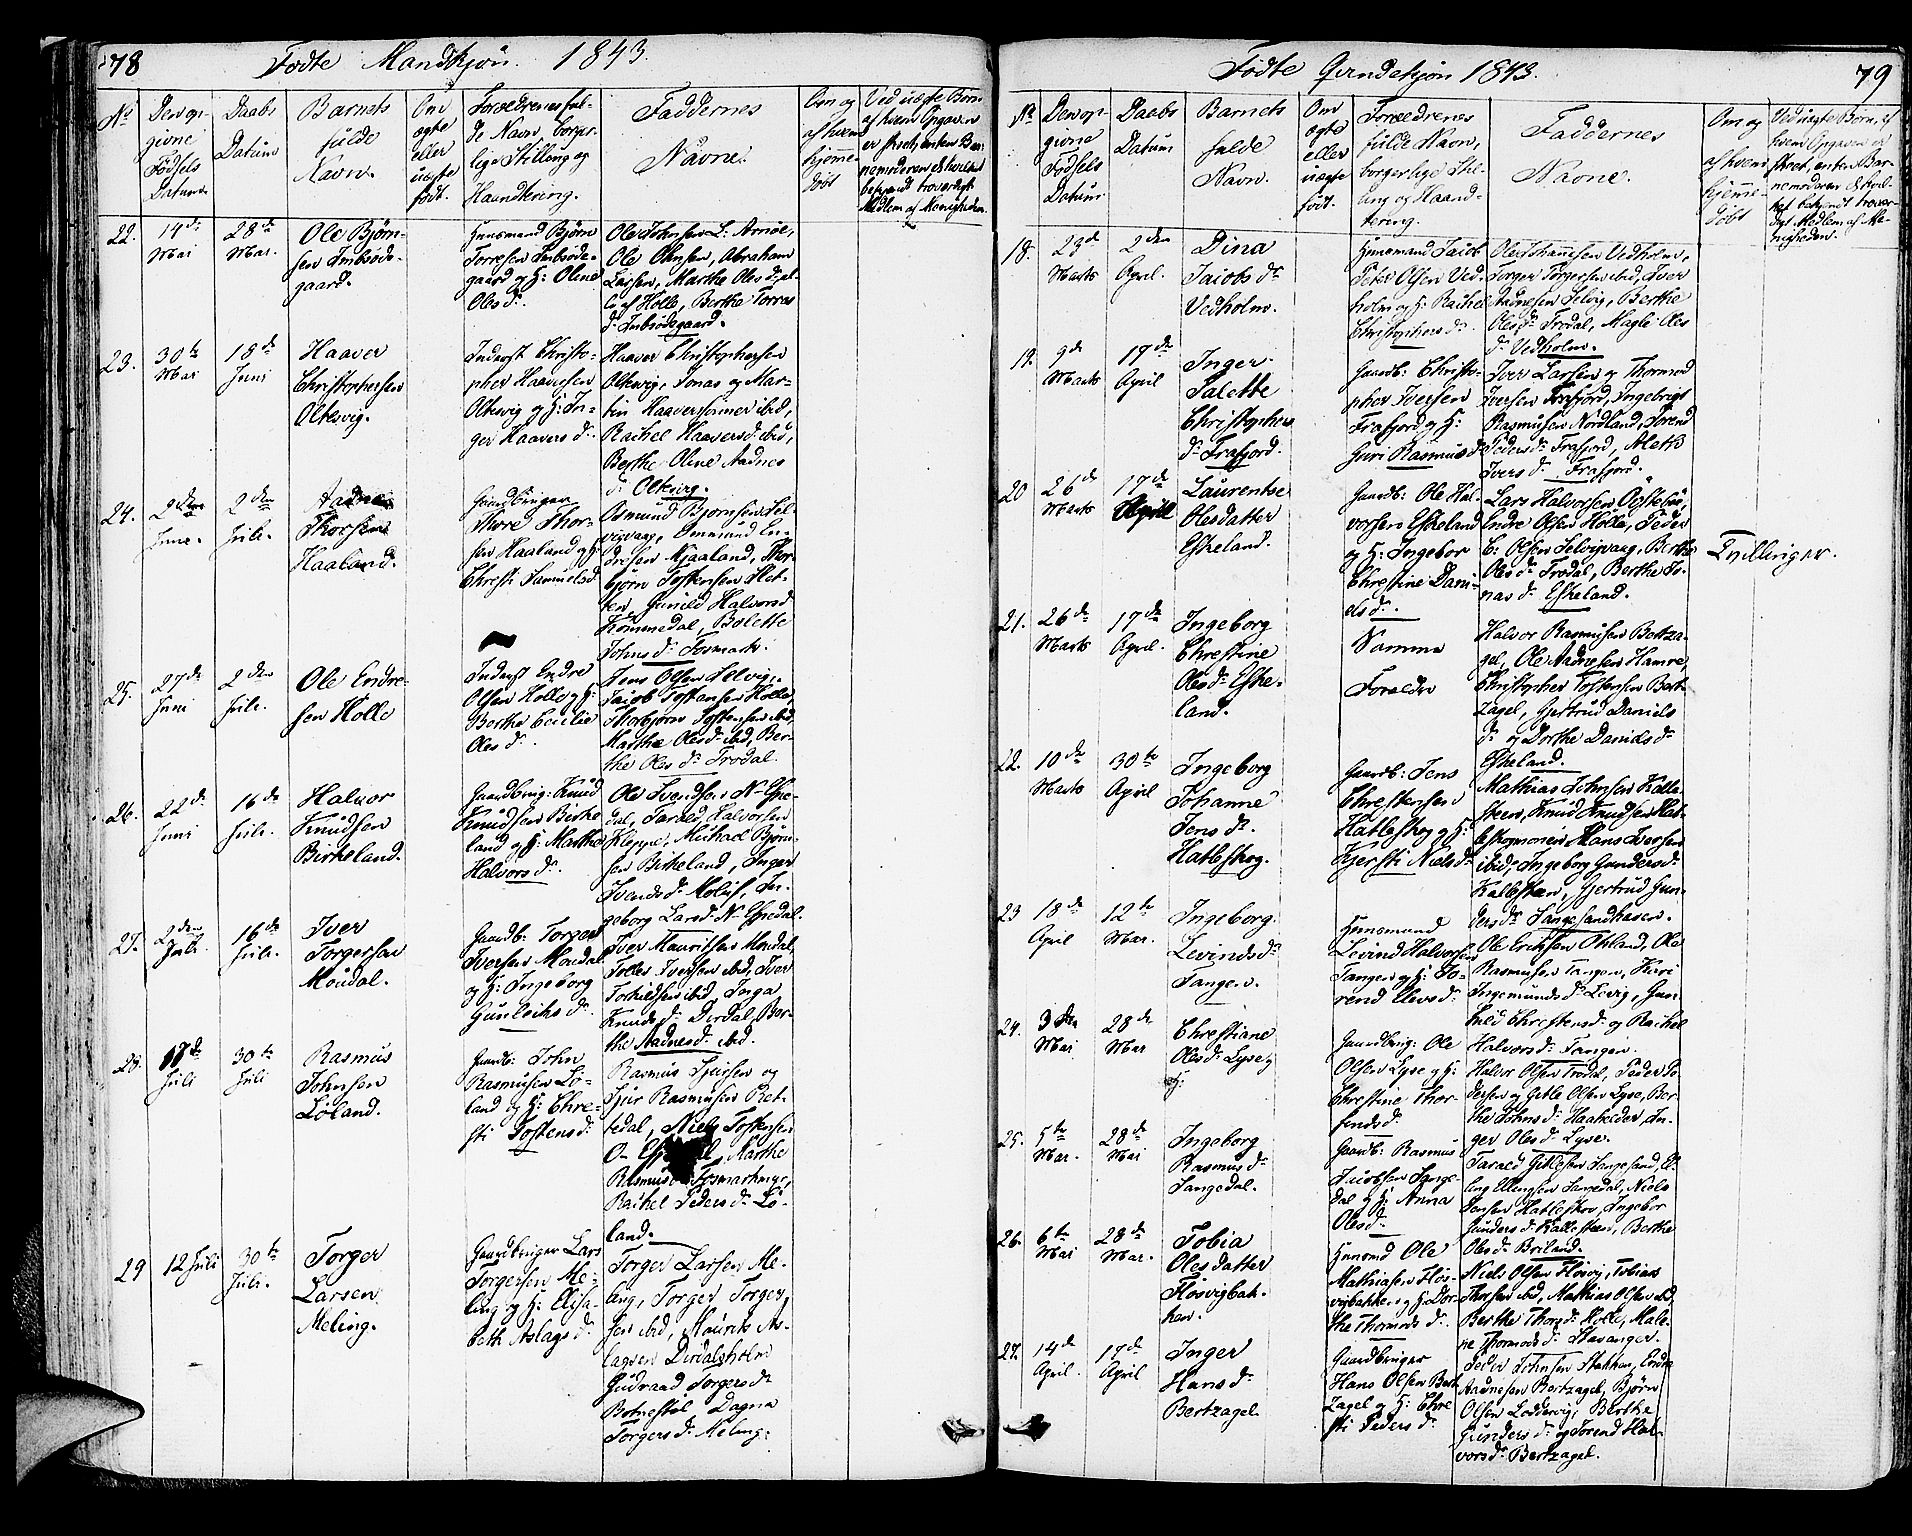 78
Fødte Mandkjøn. 1843.
No
Den op-
givne
Fødsels
Datum
Daabs
Datum
Barnets
fulde
Navn.
Om
ægte
eller
uægte
født.
Forældrenes ful-
de Navn, borger-
lige Stilling og
Haandtering.
Faddernes
Navne.
Om og
af hvem
hjemme-
døbt
Ved uægte Børn
af hvem Opgaven
er skeet, enten Bar-
nemoderen eller
bekjendt troværdigt
Medlem af Menigheden.
22.
14de
Mai
28de
Mai.
Ole Bjørn-
sen Imbsøde-
gaard.
Huusmand Bjørn
Torresen Imbsøde-
gaard og H: Oline
Olesdr.
Ole Johnsen L: Arnöe,
Ole Olensen, Abraham
Larsen, Marthe Olesdr al-
le af Hölle, Berthe Torres
dr Imbsödegaard.
23.
30te
Mai
18de
Juni
Haaver
Christophersen
Oltesvig.
Inderst Christo-
pher Haaversen
Oltesvig og H: In-
ger Haaversdr.
Haaver Christophersen
Oltesvig, Jonas og Mar-
tin Haaversønner ibid,
Rachel Haaversdr ibid,
Berthe Oline Aadnes
dr Oltesvig.
24.
2den
Juni.
2den
Juli.
Aadne
Thorsen
Haaland.
Gaardbruger
Thore Thor-
sen Haaland og H:
Christi Samuelsd
Osmund Bjørnsen Sel-
vigvaag, Ommund En-
dresen Mjaaland, Thor-
bjørn Tostensen Slet-
ten, Gunild Halvorsd
Kommedal, Bolette
Johnsdr Fosmark.
25.
27de
Juni
2den
Juli.
Ole Endre-
sen Hölle
Inderst Endre
Olsen Hölle og H:
Berthe Cecilie
Olesdr.
Jens Olsen Selvig,
Jacob Tostensen Hölle
Thorbjørn Tostensen ibid,
Marthe Olesdr ibid, Ber-
the Olesdr Frödal.
26.
22de
Juni
16de
Juli.
Halvor
Knudsen
Birkeland.
Gaardbrug: Knud
Knudsen Birke-
land og H: Marthe
Halvorsdr.
Ole Svendsen N-Espe-
dal, Tarald Halvorsen
Kleppe, Michael Bjørn-
sen Birkeland, Inger
Svendsdr Molis, In-
geborg Larsdr N-Espedal.
27.
2den
Juli.
16de
Juli.
Iver
Torgersen
Möndal.
Gaardb: Torger
Iversen Möndal
og H: Ingeborg
Gunleiksdr
Iver Mauritsen Möndal,
Tollev Iversen ibid, Iver
Torkildsen ibid, Inga
Knudsdr Dirdal, Ber-
the Aadnesdr ibid.
28.
17de
Juli
30te
Juli
Rasmus
Johnsen
Löland.
Gaardb: John
Rasmusen Lö-
land og H: Chre-
sti Tostensdr
Rasmus Sjursen og
Sjur Rasmusen Ret-
tedal, Niels Tostensen
Marthe
Rachel Pedersdr Lö-
land.
29
12 Juli
30te
Juli.
Torger
Larsen
Meling.
Gaardbruger Lars
Torgersen Me-
ling og H: Elisa-
beth Aslagsdr
Torger Larsen Me-
ling, Torger Torger-
sen ibid, Maurits As-
lagsen Dirdalsholm
Gudraad Torgersdr
Botnestøl Dagna
Torgersdr Meling.
79
Fødte Qvindekjøn 1843.
No
Den op-
givne
Fødsels
Datum
Daabs
Datum
Barnets
fulde
Navn.
Om
ægte
eller
uægte
født.
Forældrenes
fulde Navn,
borgerlige Stil-
ling og Haand-
tering.
Faddernes
Navne.
Om og
af hvem
hjemme-
døbt
Ved uægte Børn, af
hvem Opgaven er
skeet, enten Bar-
nemoderen el
bekjendt trover-
digt Medlem af Me-
nigheden.
18.
23de
Marts
2den
April.
Dina
Jacobsdr
Vedholm.
Huusmand Jacob
Peter Olsen Ved-
holm og H: Rachel
Christophersdr.
Ole Johannesen Vedholm,
Torger Torgersen ibid, Iver
Aadnesen Selvig, Berthe
Olesdr Frödal, Magle Oles
dr Vedholm.
19.
9de
Marts
17de
April
Inger
Salette
Christophers
dr Frafjord.
Gaardb: Christo-
pher Iversen
Frafjord og H:
Guri Rasmusd
Iver Larsen og Thormod
Iversen Frafjord, Ingebrigt
Rasmusen Nordland, Torend
Pedersdr Frafjord, Maths
Iversdr Frafjord.
20
26de
Marts
17de
April
Laurentse
Olesdatter
Eskeland.
Gaardb: Ole Hal-
vorsen Eskeland
og H: Ingebor
Christine Dani-
elsdr.
Lars Halvorsen Östebøe,
Endre Olsen Hölle, Peder
C: Olsen Selvigvaag, Berthe
Olesdr Frödal, Berthe Jo-
nasdr Eskeland.
Tvillinger.
21.
26de
Marts
17de
April.
Ingeborg
Christine
Olesdr Eske-
land.
Samme
Foreldre
Halvor Rasmusen Bertza-
gel, Ole Aadnesen Hamre,
Christopher Tostensen Bert-
zagel, Gjertrud Daniels
dr og Dorthe Danielsdr
Eskeland.
22.
10de
Marts
30te
April
Ingeborg
Johanne
Jensdr.
Hatleskog.
Gaardb: Jens
Christensen
Hatleskog og H:
Kjersti Nielsdr
Mathias Johnsen Kalle-
steen, Knud Knudsen Hat-
leskog Hans Iversen
ibid, Ingeborg Gundersdr
Kallesteen, Gjertrud Gun-
dersdr Langesandhaven.
23
18de
April
12te
Mai.
Ingeborg
Levindsdr
Tangen.
Huusmand
Levind Halvorsen
Tangen og H: To-
rend Elevsdr.
Ole Ericksen Okland, Ole
Rasmusen Tangen, Kari
Ingemundsdr Levig, Gun-
hild Christensdr og Rachel
Halvorsdr Tangen.
24.
3den
Mai
28de
Mai
Christiane
Olesdr Lyse,
Gaardbrug: Ole
Olsen Lyse og H:
Christine Thor-
findsdr.
Halvor Olsen Frödal, Peder Pe-
dersen og Gitle Olsen Lyse, Ber-
the Johnsdr Haakeder, In-
ger Olesdr Lyse.
25.
5te
Mai.
28de
Mai
Ingeborg
Rasmusdr
Sangedal.
Gaardb: Rasmus
Jacobsen Sange-
dal og H: Anna
Olesdr
Tarald Gitlesen Langesand, El-
ling Ellingsen Sangedal, Niels
Jansen Hatleskov, Ingebor
Gundersdr Kallesteen, Berthe
Olesdr Briland.
26.
6te
Mai
28de
Mai.
Tobia
Olesdatter
Flösvigbak-
ken.
Huusmd Ole
Mathiasen Flös-
vigbakken og H: Dor-
the Thormodsdr.
Niels Olsen Flösvig, Tobias
Thorsen ibid, Mathias Olsen ibid
Berthe Thorsdr Hölle, Male-
ne Thormodsdr Stavanger.
27.
14de
April.
17de
April
Inger
Hansdr
Bertzagel.
Gaardbruger
Hans Olsen Bert-
zagel og H: Chre-
sti Pedersdr.
Peder Johnsen Stakken, Endre
Aadnesen Bertzagel, Björn
Olsen Loddervig, Berthe
Gundersdr og Torend Hal-
vorsdr Bertzagel.